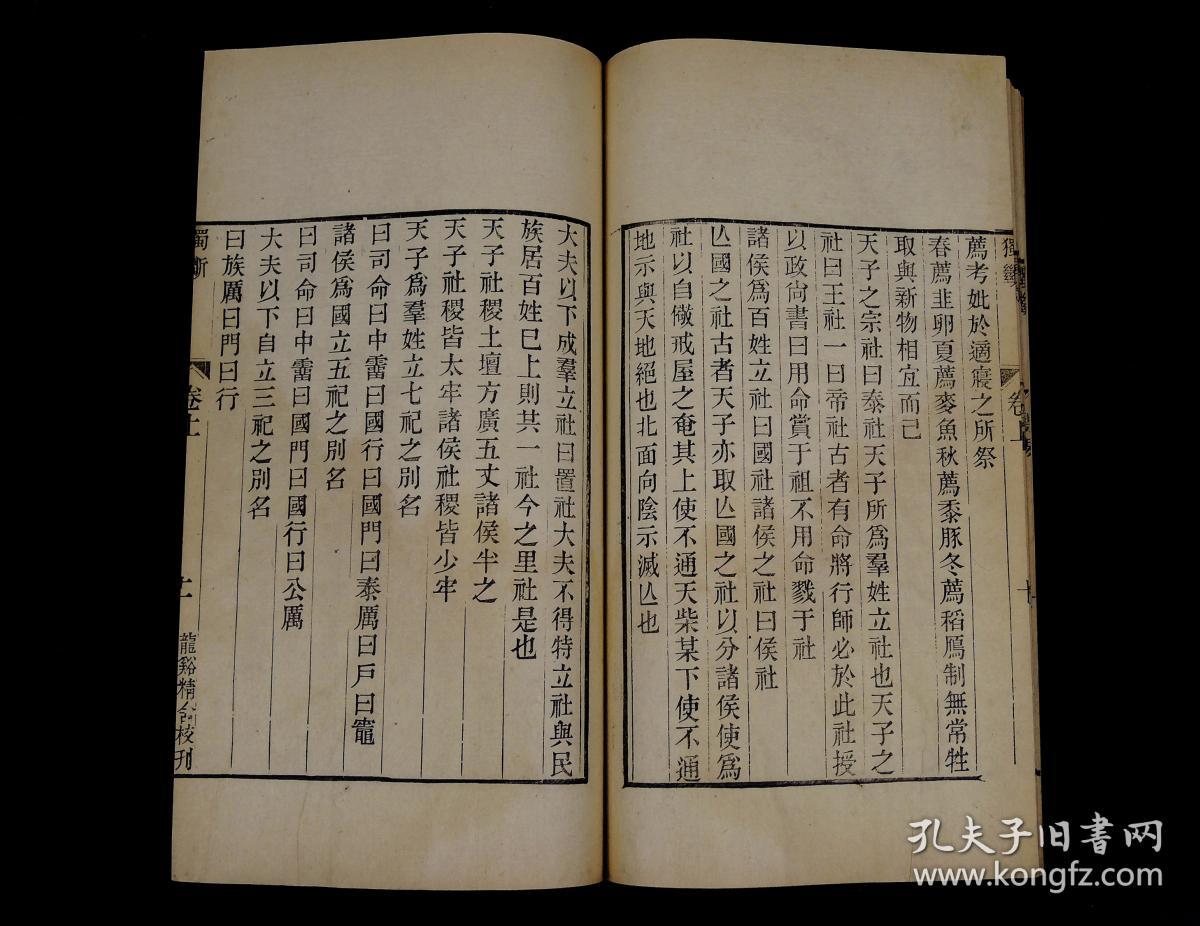 薦考妣於適寢之所祭
春薦韭卵夏薦麥魚秋薦黍豚冬薦稻鴈制無常牲
取與新物相宜而已
天子之宗社曰泰社天子所爲羣姓立社也天子之
社曰王社一曰帝社古者有命將行師必於此社授
以政尙書曰用命賞于祖不用命戮于社
諸侯爲百姓立社曰國社諸侯之社曰侯社
亾國之社古者天子亦取亾國之社以分諸侯使爲
社以自儆戒屋之奄其上使不通天柴某下使不通
地示與天地絕也北面向陰示滅亾也
大夫以下成羣立社曰置社大夫不得特立社與民
族居百姓巳上則共一社今之里社是也
天子社稷土壇方廣五丈諸侯半之
天子社稷皆太牢諸侯社稷皆少牢
天子爲羣姓立七祀之別名
曰司命曰中霤曰國行曰國門曰泰厲曰戶曰竈
諸侯爲國立五祀之別名
曰司命曰中霤曰國門曰國行曰公厲
大夫以下自立三祀之別名
曰族厲曰門曰行
獨斷
卷上
龍谿精舍校刊
孔夫子旧书网
www.kongfz.com